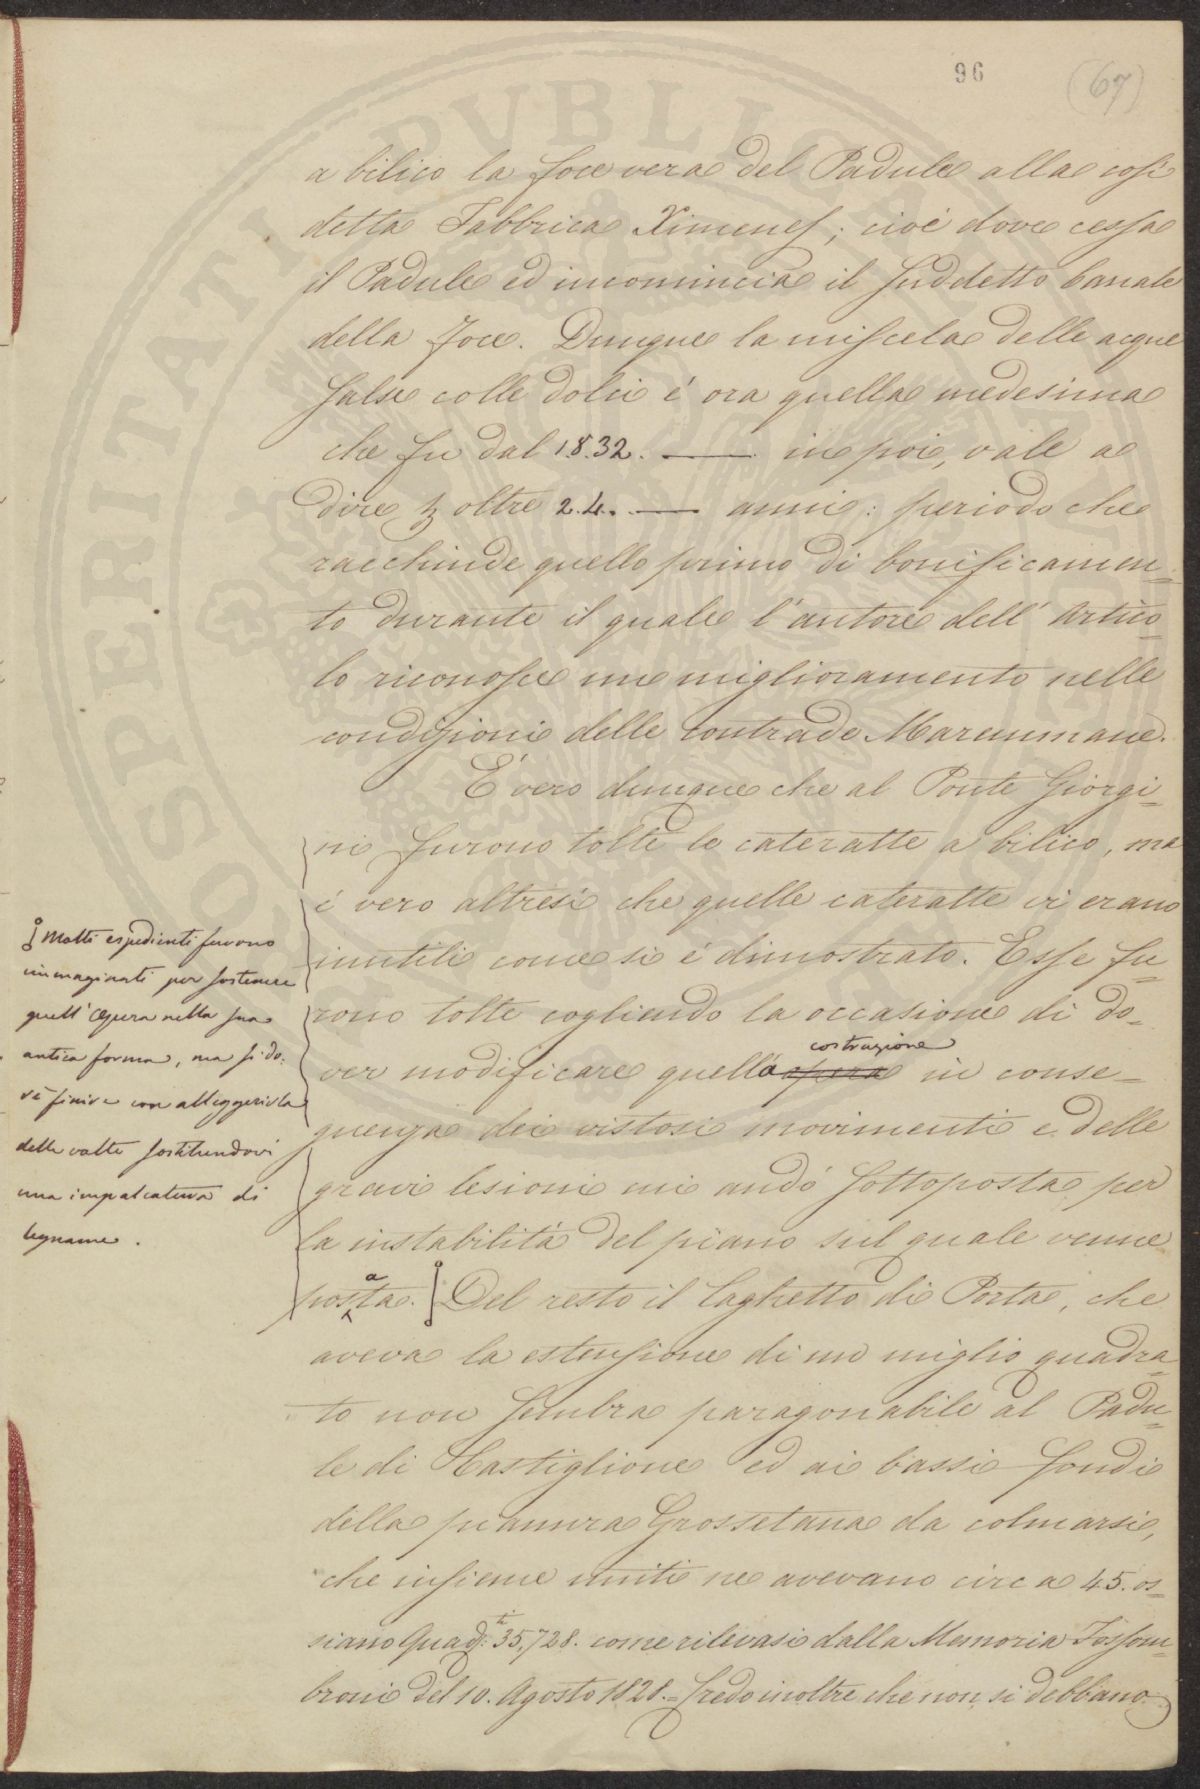 96
(67)
a bilico la foce vera del Padule alla così
detta Fabbrica Ximenes; cioè dove cessa
il Padule ed incomincia il suddetto Canale
della Foce. Dunque la miscela delle acque
salse colle dolci é ora quella medesima
che fu dal 1832. ——— in poi, vale a
dire oltre 24. —— anni: periodo che
racchiude quello primo di bonificamen=
to durante il quale l'autore dell'Artico=
lo riconosce un miglioramento nelle
condizioni delle contrade Maremmane.
É vero dunque che al Ponte Giorgi=
ni furono tolte le cateratte a bilico, ma
é vero altresì che quelle cateratte vi erano
inutili come si é dimostrato. Esse fu=
rono tolte cogliendo la occasione di do=
ver modificare quella opera costruzione in conse=
guenza dei vistosi movimenti e delle
gravi lesioni cui andó sottoposta per
la instabilitá del piano sul quale venne
posata. Del resto il Laghetto di Porta, che
aveva la estensione di un miglio quadra=
to non sembra paragonabile al Padu=
le di Castiglione ed ai bassi fondi
della pianura Grossetana da colmarsi,
che insieme uniti ne avevano circa 45. os=
siano Quad:ti 35,728. come rilevasi dalla Memoria Fossom=
broni del 10. Agosto 1828. = Credo inoltre che non si debbano
Molti espedienti furono
immaginati per sostenere
quell'opera nella sua
antica forma, ma si do:
vè finire con alleggerirla
delle volte sostituendovi
una impalcatura di
legname.
PROSPERITATI PVBLICAE